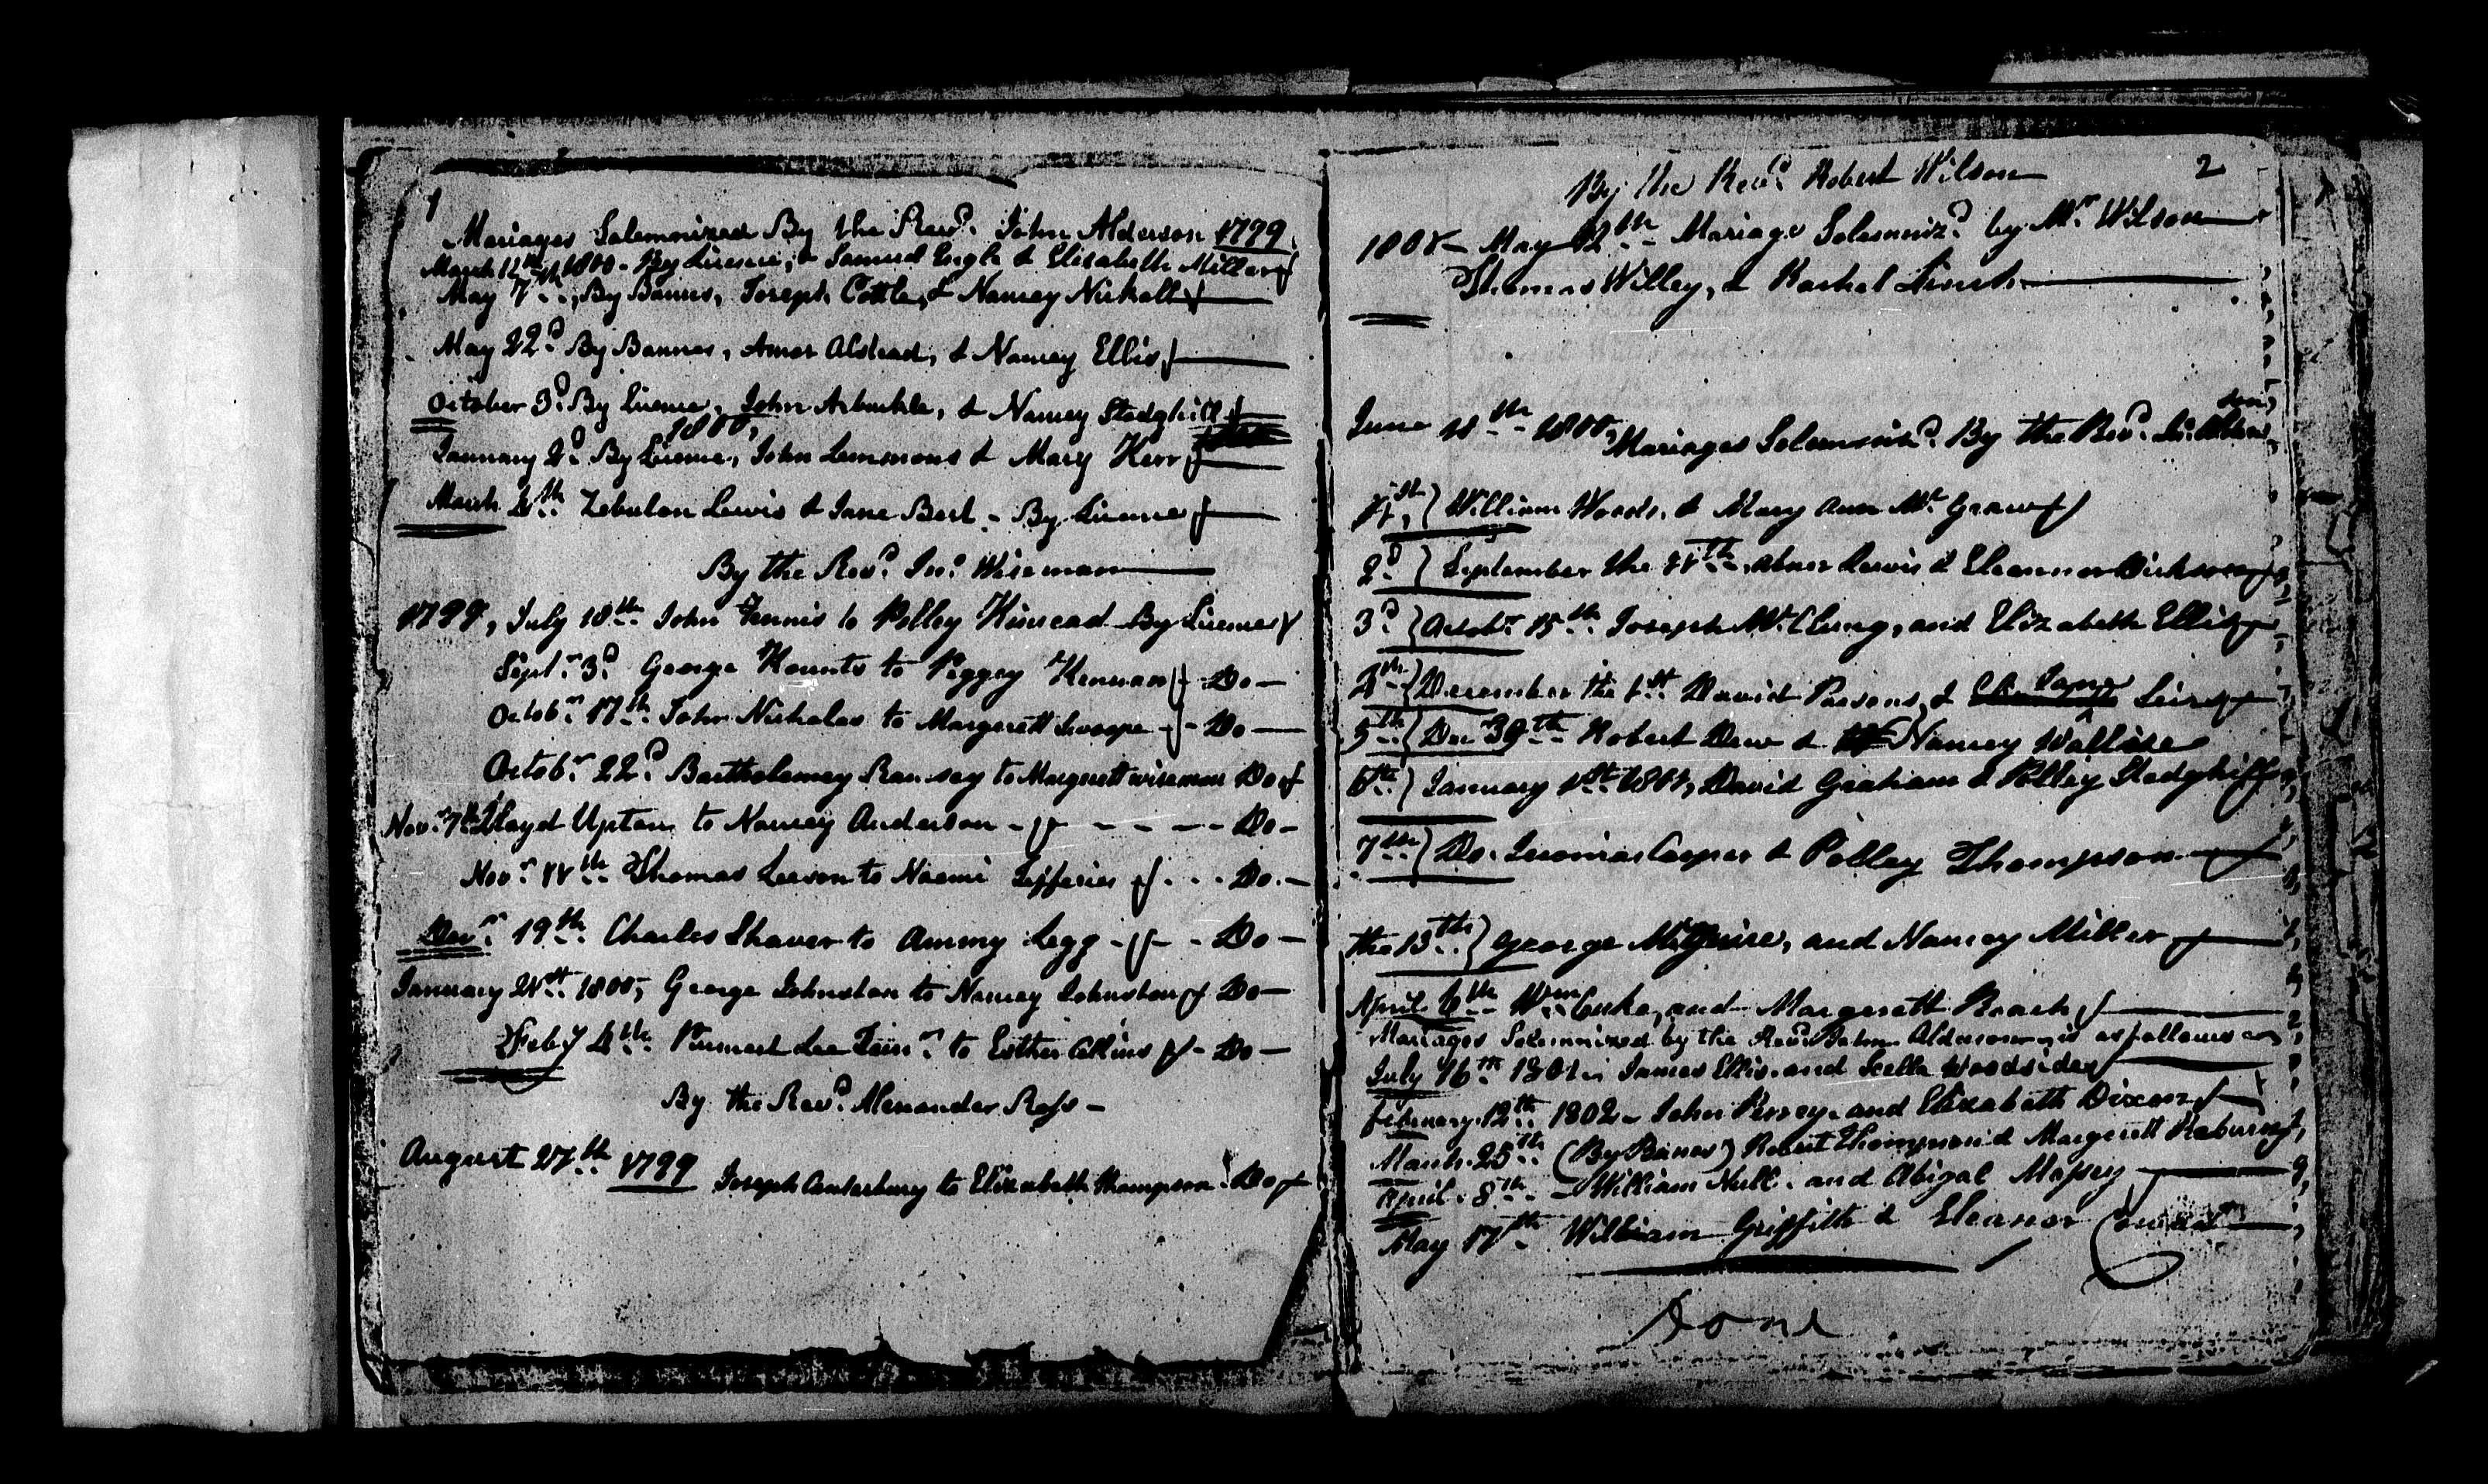 1
Mariages Solemnized By the Revd. John Alderson 1799.
March 12th 1800 - By Licence, Samuel Engle & Elisabeth Miller
May 7th, By Banns, Joseph Cottle, & Nancy Nickoll
May 22d By Bannes, Amos Alstead, & Nancey Ellis
October 3d By Licence, John Arbuckle, & Nancey Stodghill
1800,
January 2d By Licence, John Lemmons & Mary Kerr
March 4th Zebulon Lewis & Jane Best - By Licence
By the Revd. Jno. Wiseman
1799, July 18th John Finnis to Polley Kincead By Licence
Septr. 3d George Kounts to Peggey Keenan - Do -
Octobr. 17th John Nicholas to Margerett Swoope - Do -
Octobr. 22d Bartholomey Ramsey to Margrett wiseman Do
Novr. 7th Lloyd Upton to Nancey Anderson - - - - Do -
Novr. 11th Thomas Leeson to Naomi Jefferies - - - Do. -
Decr. 19th Charles Shaver to Ammy Legg - - Do -
January 21st 1800, George Johnston to Nancey Johnston Do -
Feby 4th Lee Junr. to Esther Atkins - Do -
By the Revd. Alexander Ross -
August 27th 1799 Joseph Canterbury to Elizabeth Thompson - Do
2
By the Revd. Robert Wilson
1800 - May 12th - Mariage Solemnizd. by Mr. Wilson
Thomas Willey, & Rachel
June 11th 1800, Mariages Solemnizd. By the Revd. Jn. Alderson,
1st, } William Woods, & Mary Ann Mc Graw
2d } September the 11th Abner Lewis & Eleannor Dickson
3d } Octobr 15th Joseph McClung, and Elizabeth Ellis
4th } December the 1st David Parsons, & Jane
5th } Dec 30th Robert Dew & Nancey Wallise
6th } January 1st 1801, David Graham & Polley Stodghill
7th } Do. Cooper & Polley Thompson
the 15th } George McGuire, and Nancey Miller
April 6th Wm. and Margerett Roach
Mariages Solemnized by the Revd. John Alderson is as follows
July 16th 1801 - James Ellis and Scella Woodsides
February 12th 1802 - John Perrey and Elizabeth Dixon
March 25th (By Banns) Robert Thompson & Margerett Raburn
April 8th - William Null and Abigal Massey
May 17th William Griffith & Eleanor
Done